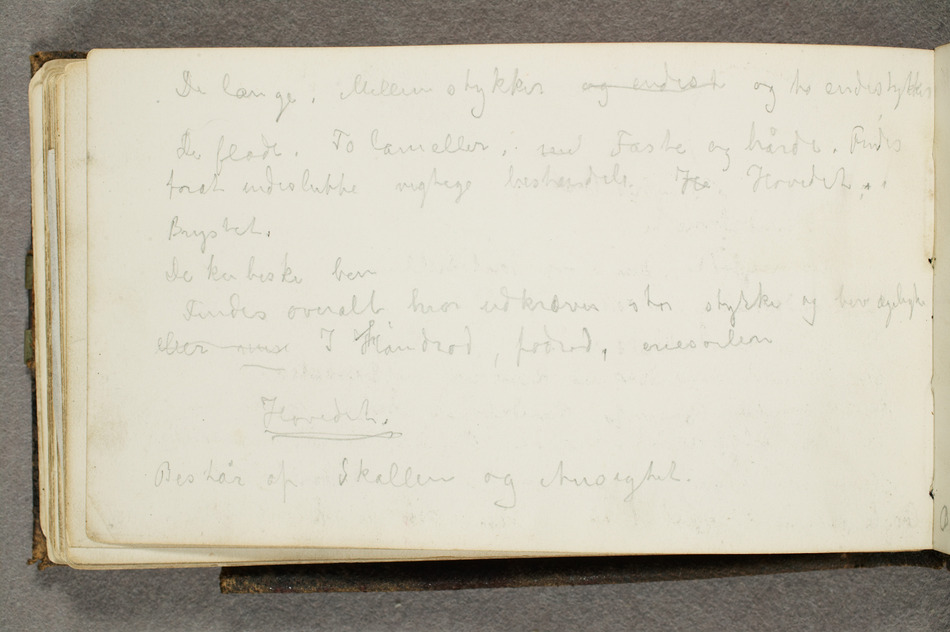 De lange. Mellemstykker og endest og to endestykker
De flade. To lameller, med Faste og hårde. Findes
forat indeslutte vigtige bestandele. Ho Hovedet,.
Brystet.
De kubiske ben
Findes overalt hvor udkræver stor stykke og bevægelighe
eller I Håndrod, fodrod,
Hovedet.
Består af Skallen og Ansigtet.